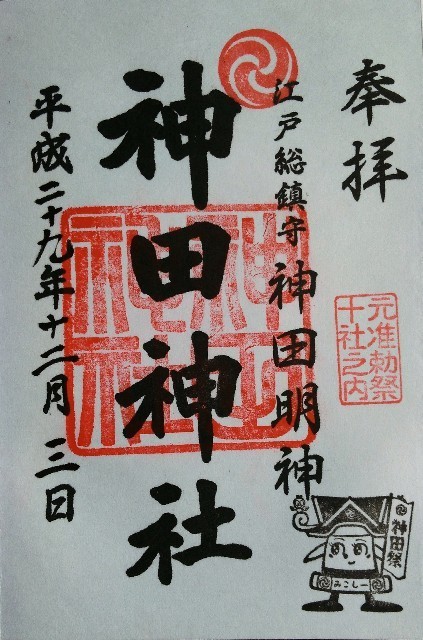 奉拝
元准勅祭
十社之内
江戸総鎮守 神田明神
神田神社
神田
神社
平成二十九年十二月三日
神田祭
みこしー